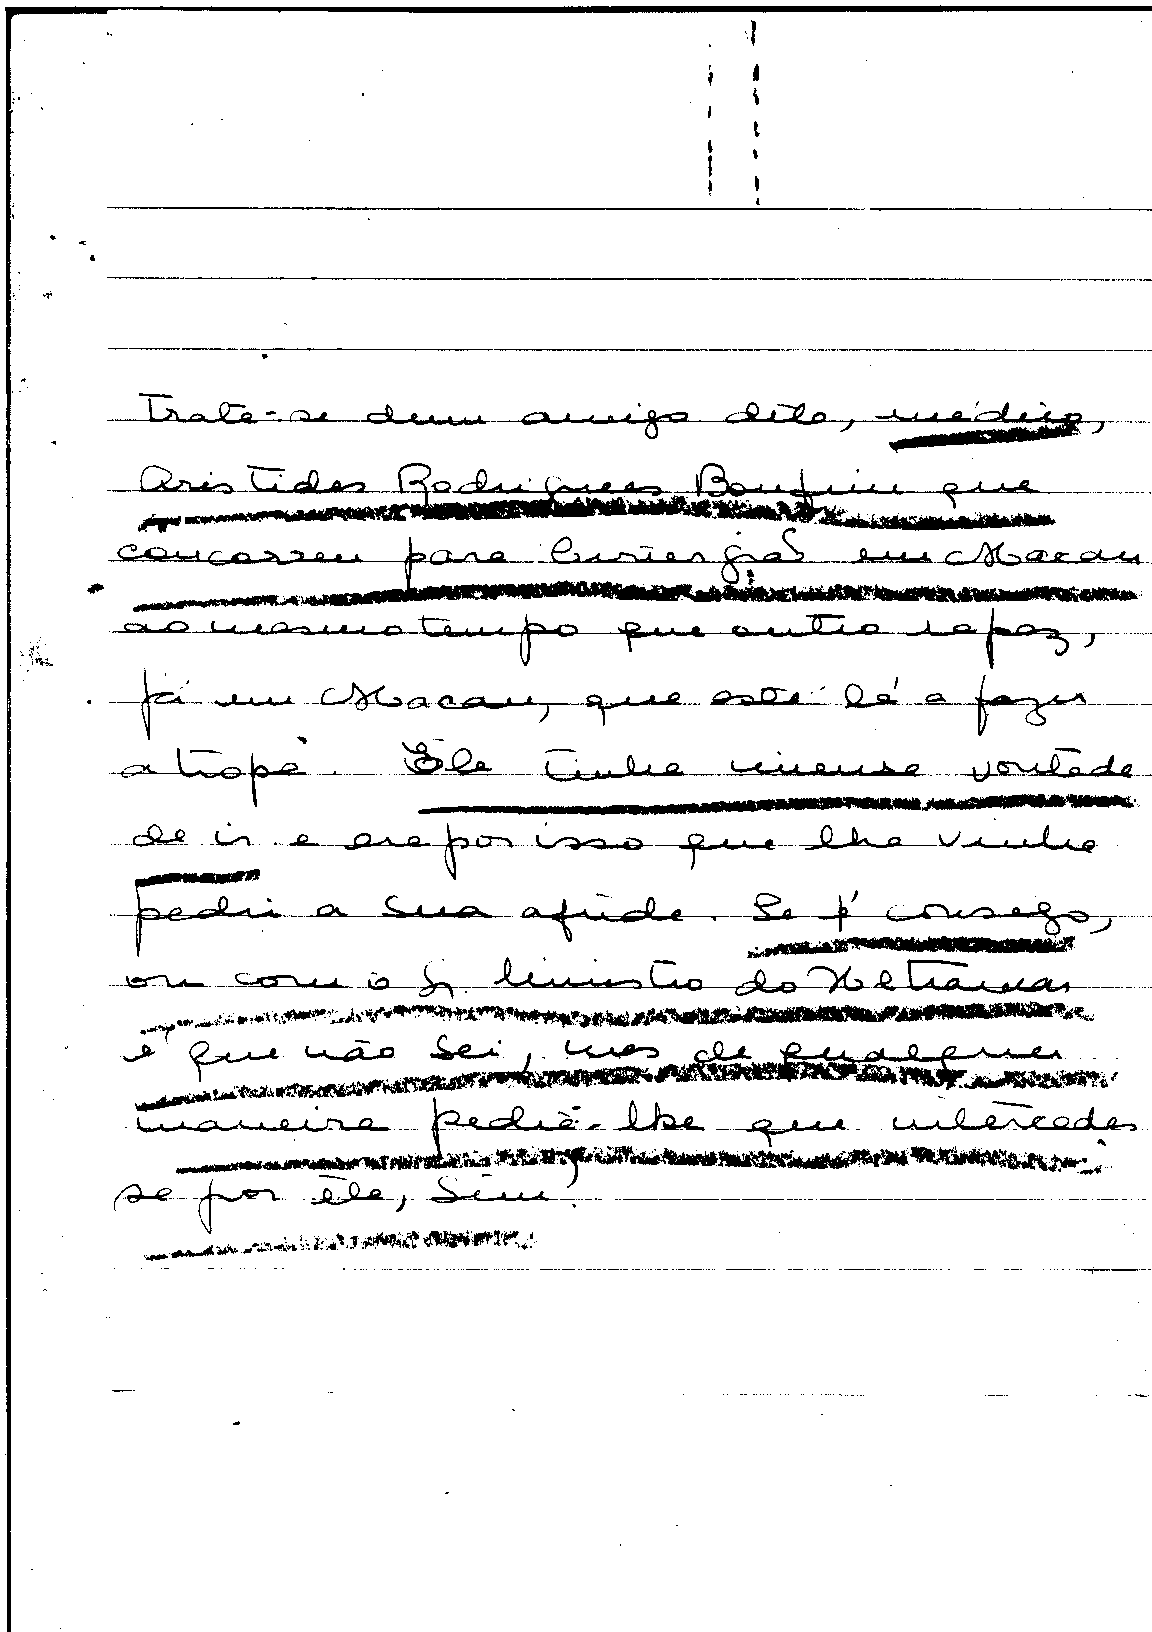 Trata-se dum amigo dêle, médico,
Aristides Rodrigues Bonfim que
concorreu para cirurgião em Macau
ao mesmo tempo que outro rapaz,
já em Macau, que está lá a fazer
a tropa. Êle tinha imensa vontade
de ir e era por isso que lhe vinha
pedir a sua ajuda. Se é consego,
ou com o Sr. Ministro do Ultramar
é que não sei, mas de qualquer
maneira pedia-lhe que intercedes
se por êle, sim?